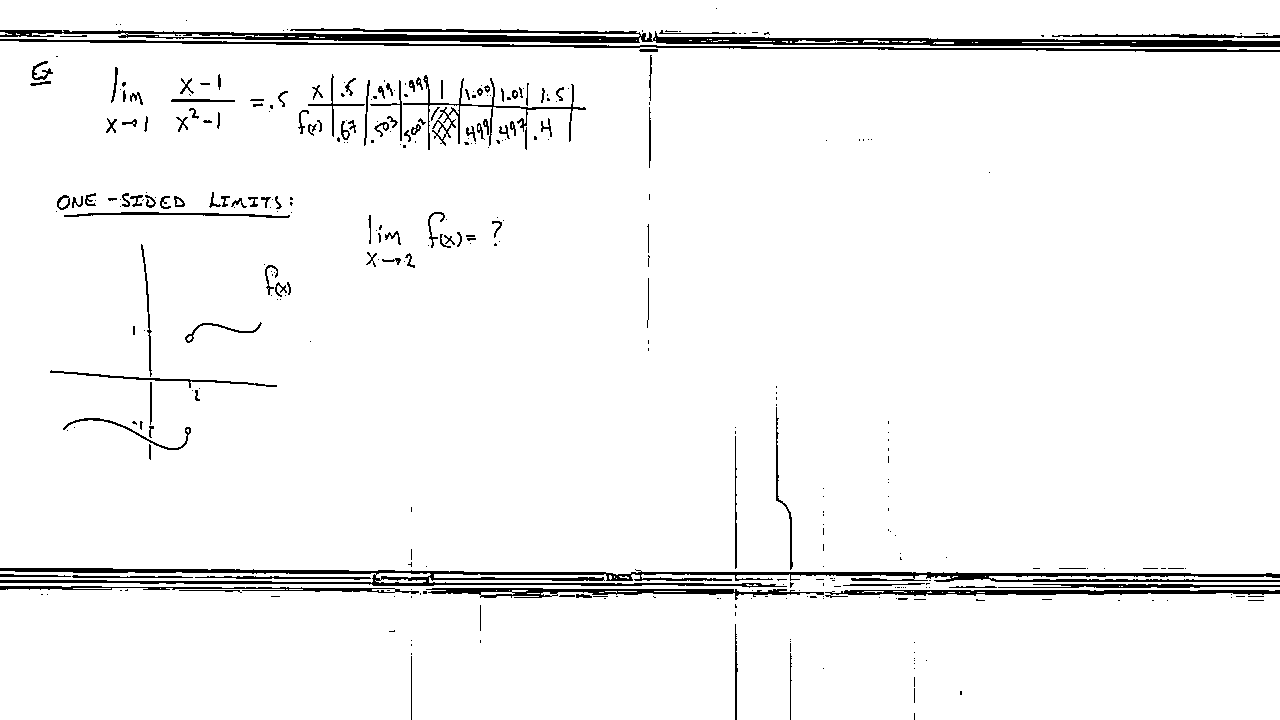 Ex
lim x→1 (x-1)/(x²-1) = .5
x | .5 | .99 | .999 | 1 | 1.001 | 1.01 | 1.5
f(x) | .67 | .503 | .5002 | | .499 | .497 | .4
ONE-SIDED LIMITS:
lim x→2 f(x) = ?
f(x)
1
2
-1